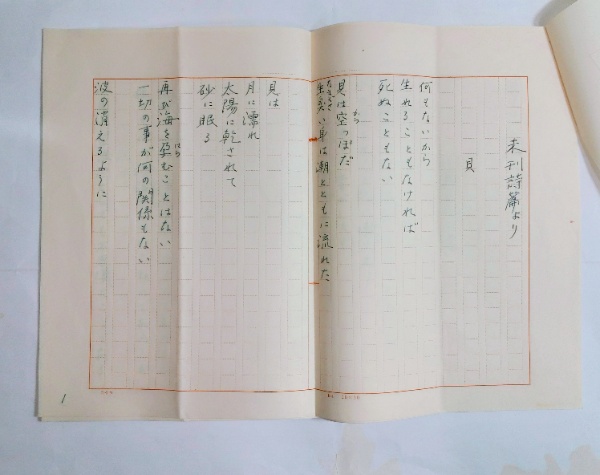 未刊詩篇より
貝
何もないから
生れることもなければ
死ぬこともない
貝は空っぽだ
生臭い事は潮とともに流れた
貝は
月に濡れ
太陽に乾されて
砂に眠る
再び海を孕むことはない
一切の事が何の関係もない
波の消えるように
1